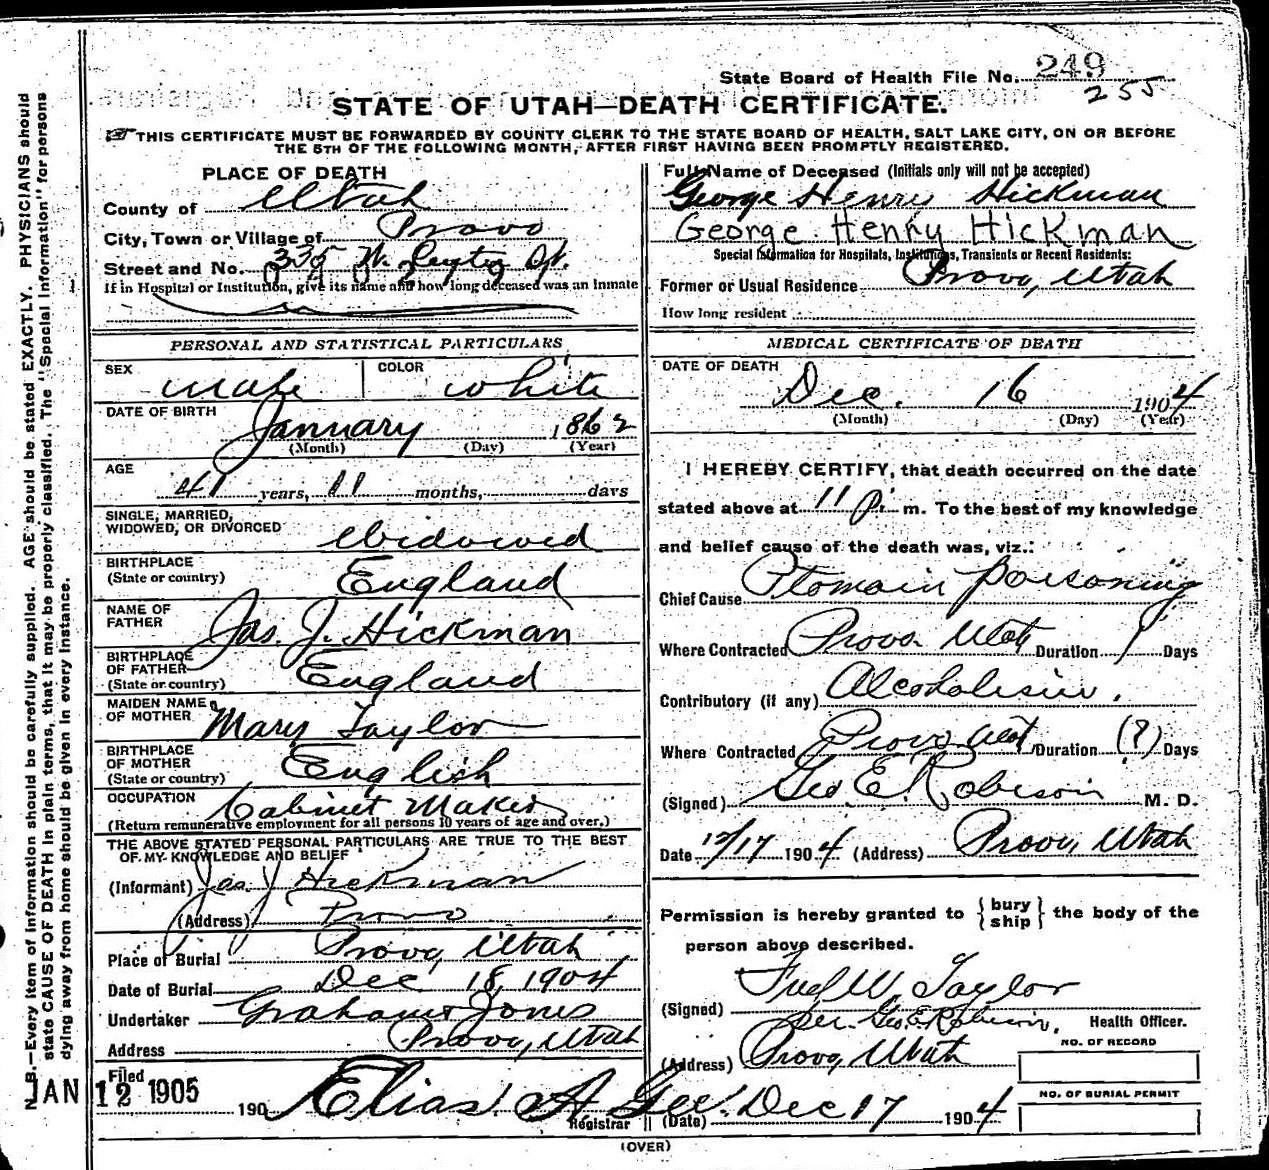 State Board of Health File No. 249
255
STATE OF UTAH—DEATH CERTIFICATE.
THIS CERTIFICATE MUST BE FORWARDED BY COUNTY CLERK TO THE STATE BOARD OF HEALTH, SALT LAKE CITY, ON OR BEFORE
THE 5TH OF THE FOLLOWING MONTH, AFTER FIRST HAVING BEEN PROMPTLY REGISTERED.
PLACE OF DEATH
County of Utah
City, Town or Village of Provo
Street and No. 335 W. St.
If in Hospital or Institution, give its name and how long deceased was an Inmate
Full Name of Deceased (Initials only will not be accepted)
George Henry Hickman
George Henry Hickman
Special Information for Hospitals, Institutions, Transients or Recent Residents:
Former or Usual Residence Provo, Utah
How long resident
PERSONAL AND STATISTICAL PARTICULARS
SEX male COLOR white
DATE OF BIRTH
January 1862
(Month) (Day) (Year)
AGE
41 years, 11 months, days
SINGLE, MARRIED,
WIDOWED, OR DIVORCED Widowed
BIRTHPLACE
(State or country) England
NAME OF
FATHER Jas. J. Hickman
BIRTHPLACE
OF FATHER
(State or country) England
MAIDEN NAME
OF MOTHER Mary Taylor
BIRTHPLACE
OF MOTHER
(State or country) English
OCCUPATION Cabinet Maker
(Return remunerative employment for all persons 10 years of age and over.)
THE ABOVE STATED PERSONAL PARTICULARS ARE TRUE TO THE BEST
OF MY KNOWLEDGE AND BELIEF
(Informant) Jas J Hickman
(Address) Provo
Place of Burial Provo, Utah
Date of Burial Dec 18, 1904
Undertaker Graham & Jones
Address Provo, Utah
Filed
JAN 12 1905
190 Elias A Gee.
Registrar
MEDICAL CERTIFICATE OF DEATH
DATE OF DEATH
Dec. 16 1904
(Month) (Day) (Year)
I HEREBY CERTIFY, that death occurred on the date
stated above at 11 P. m. To the best of my knowledge
and belief cause of the death was, viz.:
Chief Cause Ptomain poisoning
Where Contracted Provo Utah Duration 1 Days
Contributory (if any) Alcoholism.
Where Contracted Provo Utah Duration (?) Days
(Signed) Geo E. Robison M. D.
Date 12/17 1904 (Address) Provo, Utah
Permission is hereby granted to {bury
ship} the body of the
person above described.
(Signed) Fred W. Taylor
per. Geo E Robison, Health Officer.
(Address) Provo, Utah
NO. OF RECORD
NO. OF BURIAL PERMIT
(Date) Dec 17 1904
(OVER)
N. B.—Every item of information should be carefully supplied. AGE should be stated EXACTLY. PHYSICIANS should
state CAUSE OF DEATH in plain terms, that it may be properly classified. The "Special Information" for persons
dying away from home should be given in every instance.